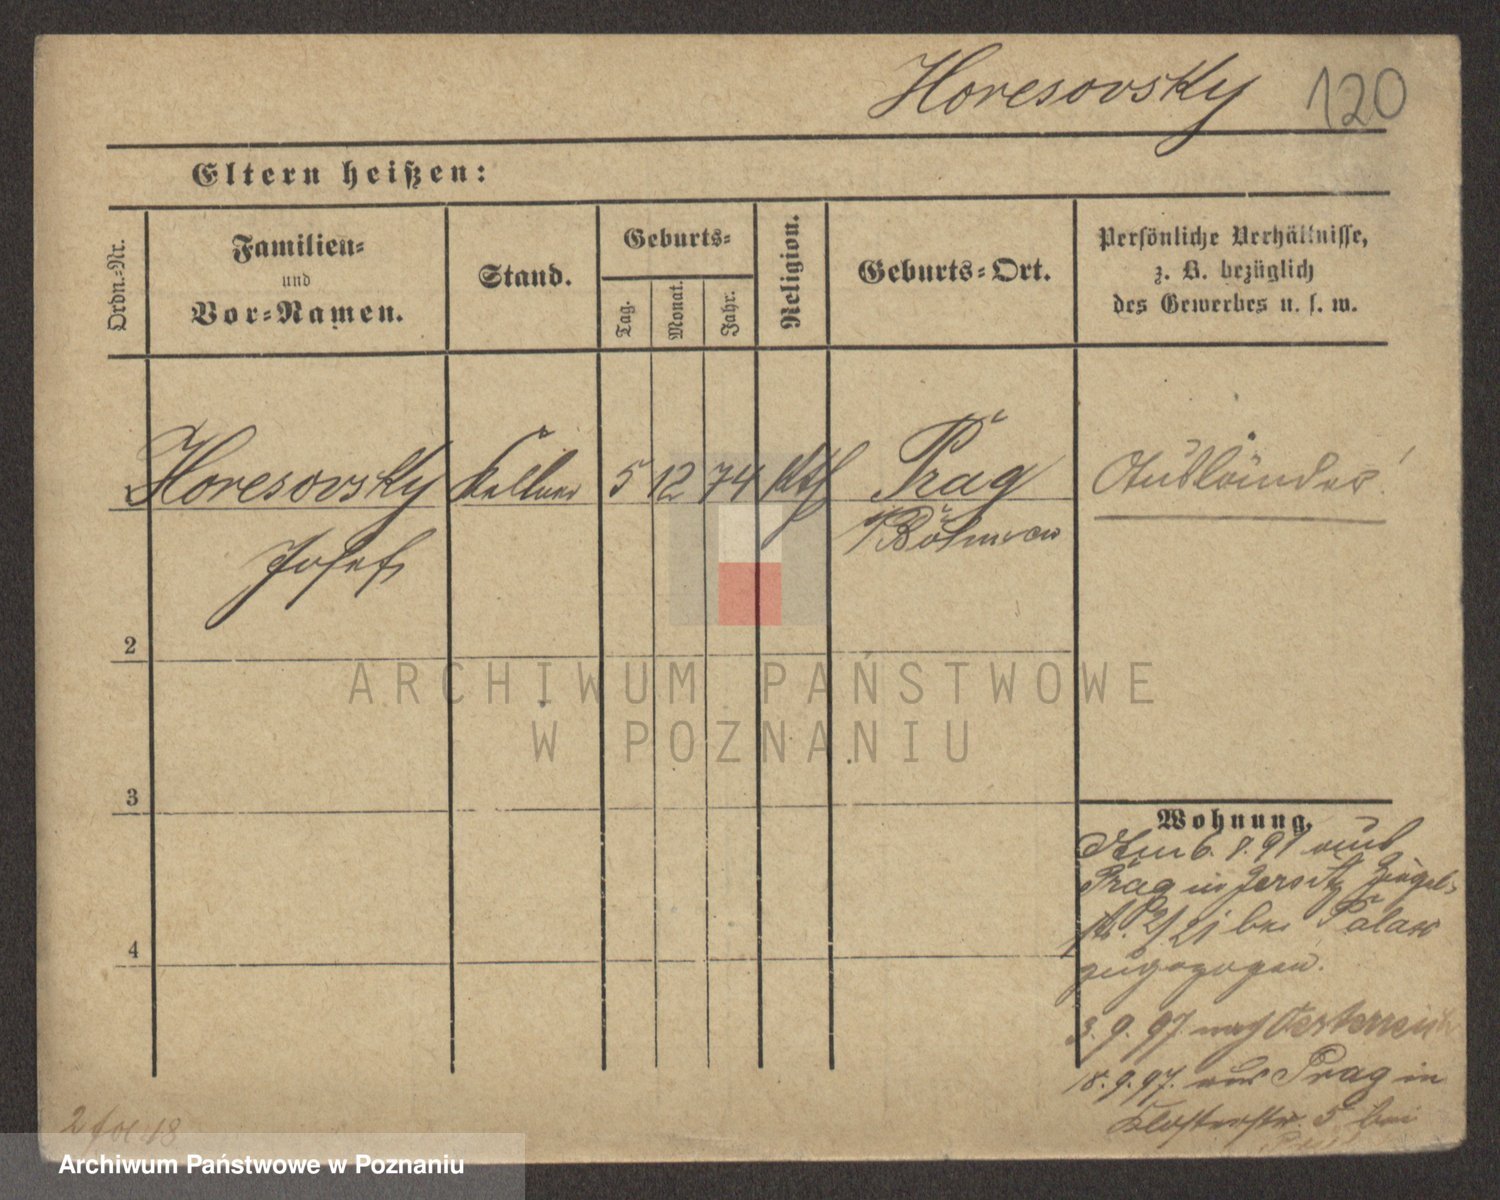 Horesovsky 120
Eltern heißen:
Ordn.-Nr.
Familien-
und
Vor-Namen.
Stand.
Geburts-
Tag.
Monat.
Jahr.
Religion.
Geburts-Ort.
Persönliche Verhältnisse,
z. B. bezüglich
des Gewerbes u. s. w.
1 Horesovsky Kellner 5 12 74 kth Prag Ausländer!
Josef
Böhmen
2
3
4
ARCHIWUM PAŃSTWOWE
W POZNANIU
Wohnung.
Am 6. 8. 97 aus
Prag in Jersitz
21 bei
zugezogen.
3. 9. 97. nach Oesterreich
18. 9. 97. aus Prag in
Klosterstr. 5 bei
Archiwum Państwowe w Poznaniu